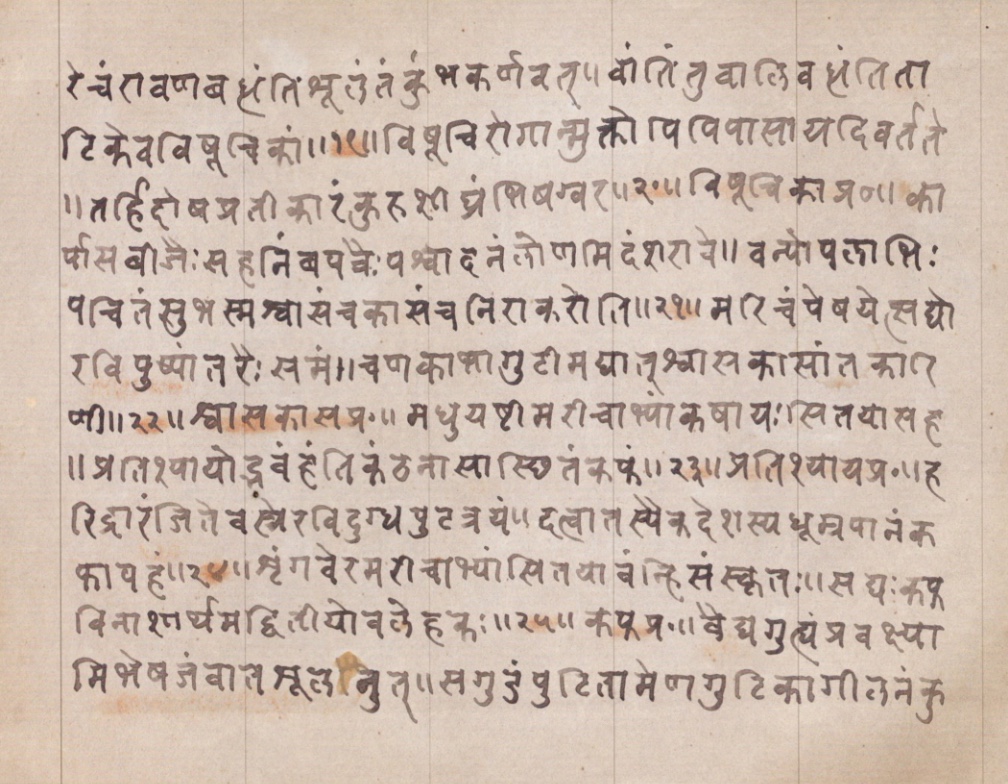 रेचं रावणबद्धंति शूलं तं कुंभकर्णवत्॥ वांतिं तु वालिवद्धंति ता
टिकेव विषूचिकां॥१९॥ विषूचिरोगान्मुक्तोपि पिपासा यदि वर्तते
॥ तर्हि दोषप्रतीकारं कुरु शीघ्रं भिषग्वर॥२०॥ विषूचिकाप्र०॥ का
र्पासबीजैः सह निंबपत्रैः पश्चादनं लोणमिदं शरावे॥ वन्योपलाभिः
पचितं सुभस्म श्वासं च कासं च निराकरोति॥२१॥ मरिचं पेषयेत्सद्यो
रविपुष्पांतरैः समं॥ चणकाभा गुटीमद्यात् श्वासकासांतकारि
णी॥२२॥ श्वासकासप्र०॥ मधुयष्टीमरीचाभ्यां कषायः सितया सह
॥ प्रतिश्यायोद्भवं हंति कंठनासास्छितं कफं॥२३॥ प्रतिश्यायप्र०॥ ह
रिद्रारंजिते वस्त्रे रविदुग्धपुटत्रयं॥ दत्वा तस्यैकदेशस्य धूम्रपानं क
फापहं॥२४॥ शृंगवेरमरीचाभ्यां सितया वंन्हिसंस्कृतः॥ सद्यः कफ
विनाशार्थमद्वितीयोवलेहकः॥२५॥ कफप्र०॥ वैद्यगुह्यं प्रवक्ष्या
मि भेषजं वातशूलनुत्॥ सगुडं पुटितामेण गुटिकागीलनं कु